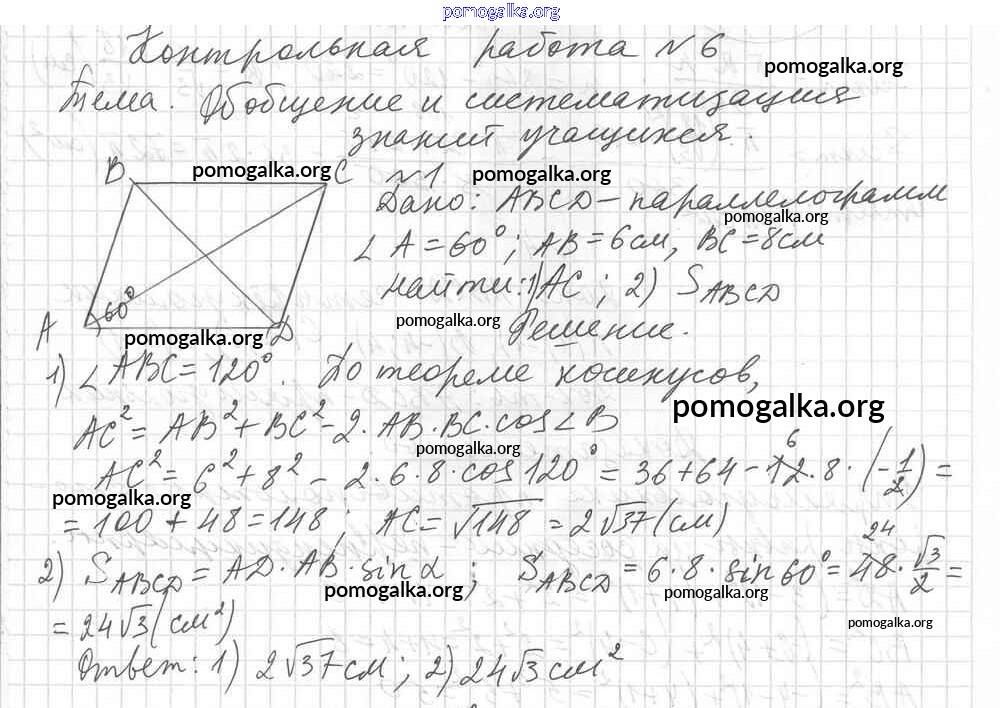 pomogalka.org
Контрольная работа №6
pomogalka.org
Тема. Обобщение и систематизация
знаний учащихся.
B pomogalka.org C №1 pomogalka.org
Дано: ABCD – параллелограмм
pomogalka.org
∠A = 60°; AB = 6см, BC = 8см
найти: 1) AC; 2) S_ABCD
60°
A pomogalka.org D pomogalka.org Решение.
1) ∠ABC = 120°. По теореме косинусов,
pomogalka.org
AC² = AB² + BC² - 2·AB·BC·cos∠B
pomogalka.org
AC² = 6² + 8² - 2·6·8·cos120° = 36 + 64 - 12·8·(-1/2) =
6
pomogalka.org
= 100 + 48 = 148; AC = √148 = 2√37 (см)
24
2) S_ABCD = AD·AB·sinα; S_ABCD = 6·8·sin60° = 48·√3/2 =
pomogalka.org pomogalka.org
= 24√3 (см²)
pomogalka.org
Ответ: 1) 2√37см; 2) 24√3см²